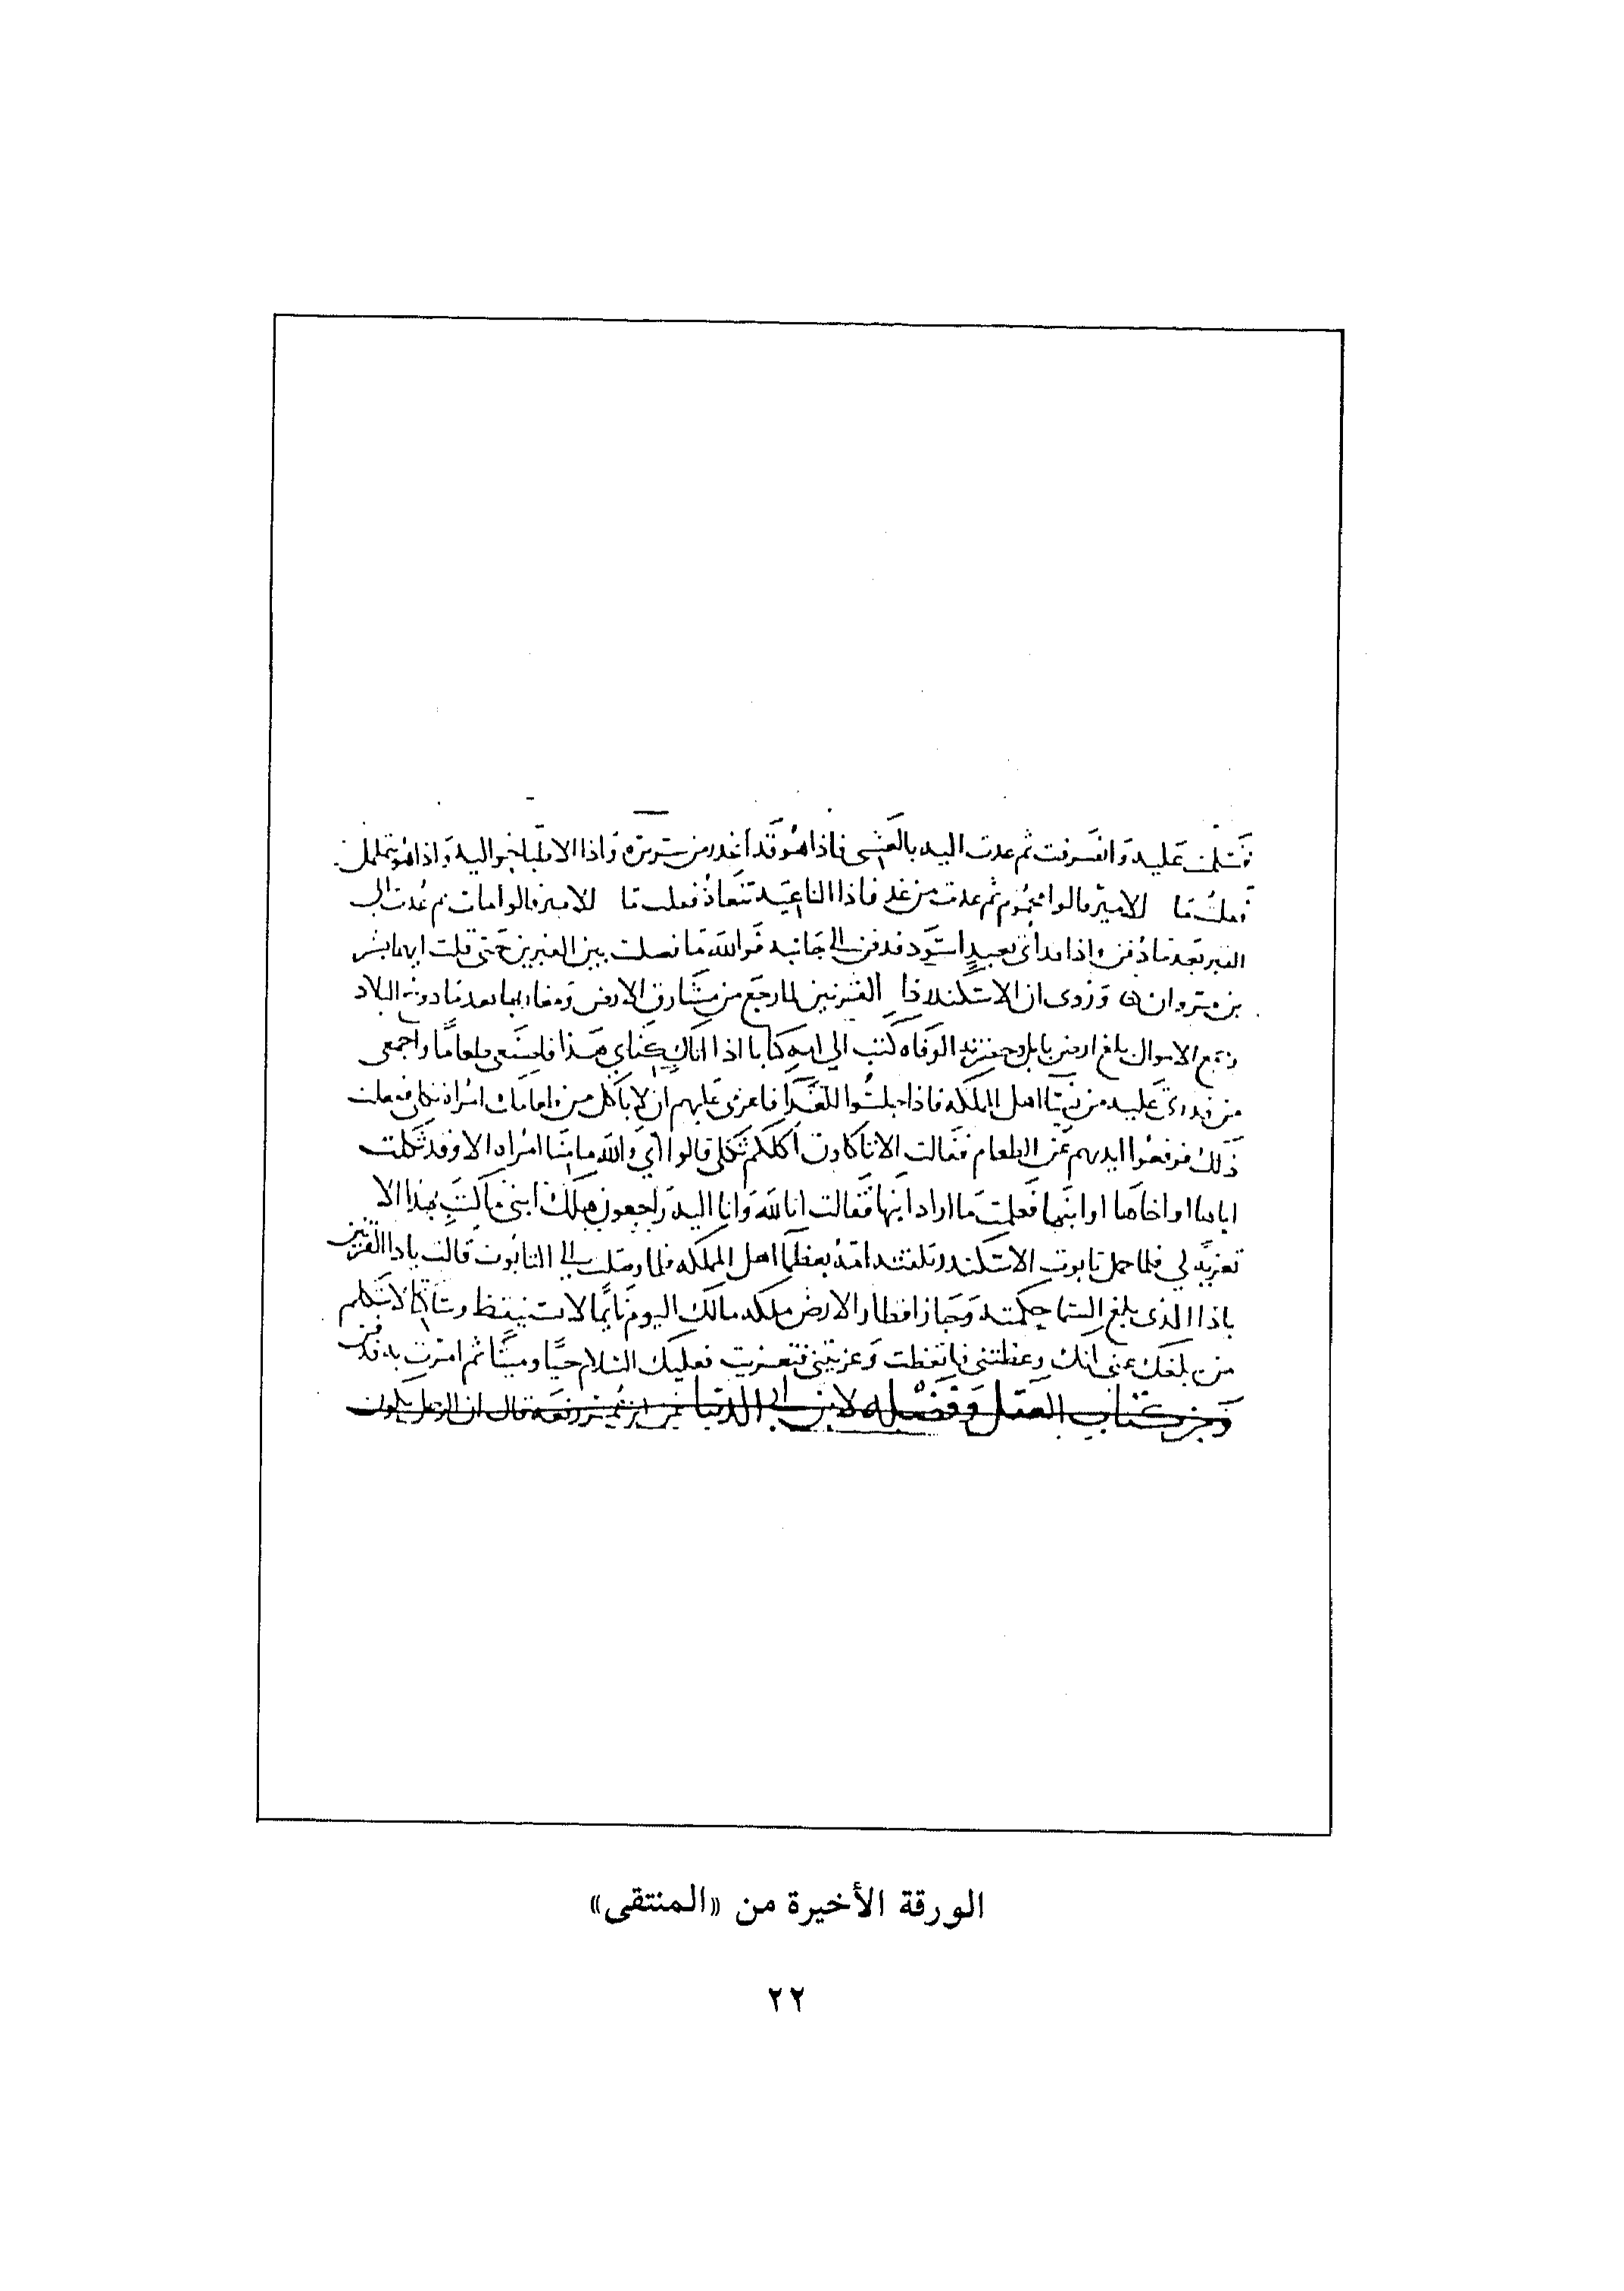 فسلمت عليه وانصرفت ثم عدت اليه بالعشي فاذا هو قد اخدر من سريره واذا الاطبا حواليه واذا هو يتململ
فعلت ما الامير قالوا محموم ثم عدت من غد فاذا الناعية تنعاه فعلت ما الامير قالوا مات ثم عدت الى
القبر بعد ما دفن واذا بعبد اسود قد دفن الى جانبه فوالله ما فصلت بين القبرين حتى قلت ايهما بشر
بن مروان وروى ان الاسكندر ذا القرنين لما رجع من مشارق الارض ومغاربها بعد ما دوخ البلاد
وجمع الاموال بلغ ارض بابل وحضرته الوفاه كتب الى امه كتابا اذا اتاك كتابي هذا فاصنعي طعاما واجمعي
من قدرت عليه من نسا اهل المملكه فاذا جلسوا للغدا فاعزمي عليهم ان لا ياكل من طعامك امراة ثكلى ففعلت
ذلك فرفعوا ايديهم عن الطعام فقالت الا تاكلون اكلكم ثكلى قالوا اي والله ما منا امراه الا وقد ثكلت
اباها او اخاها او ابنها فعلمت ما اراد ابنها فقالت انا لله وانا اليه راجعون هلك ابني ما كتب بهذا الا
تعزيه لي فلما حمل تابوت الاسكندر تلقته امه بعظما اهل المملكه فلما وصلت الى التابوت قالت يا ذا القرنين
يا ذا الذى بلغ السما حكمته وجاز اقطار الارض ملكه مالك اليوم نايما لا تستيقظ وساكتا لا تتكلم
من بلغك عني انك وعظتني فاتعظت وعزيتني فتعزيت فعليك السلام حيا وميتا ثم امرت به فدفن
ومن كتاب العقل وفضله لابن ابي الدنيا قال ان الرجل ليكون
الورقة الأخيرة من «المنتقى»
٢٢